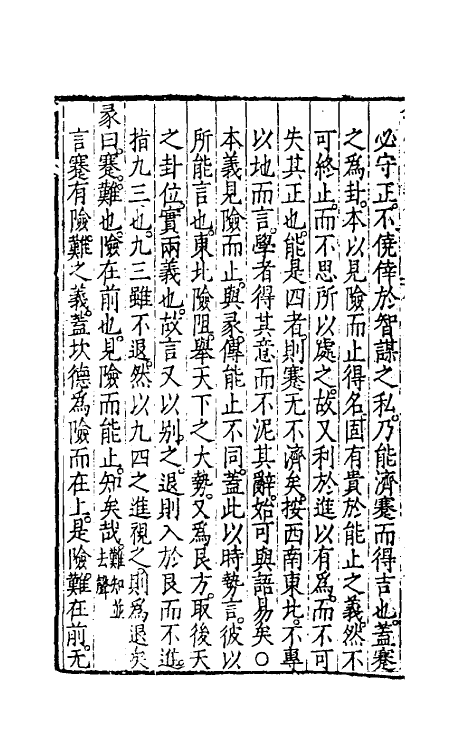 必守正。不僥倖於智謀之私。乃能濟蹇而得吉也。蓋蹇
之為卦。本以見險而止得名。固有貴於能止之義。然不
可終止。而不思所以處之。故又利於進以有為。而不可
失其正也。能是四者。則蹇无不濟矣。按西南東北。不專
以地而言。學者得其意而不泥其辭。始可與語易矣○
本義見險而止。與彖傳能止不同。蓋此以時勢言。彼以
所能言也。東北險阻。舉天下之大勢。又為艮方。取後天
之卦位。實兩義也。故言又以別之。退則入於艮而不進。
指九三也。九三雖不退。然以九四之進視之。則為退矣
彖曰。蹇。難也。險在前也。見險而能止。知矣哉。難知並去聲
言蹇有險難之義。蓋坎德為險而在上。是險難在前。无